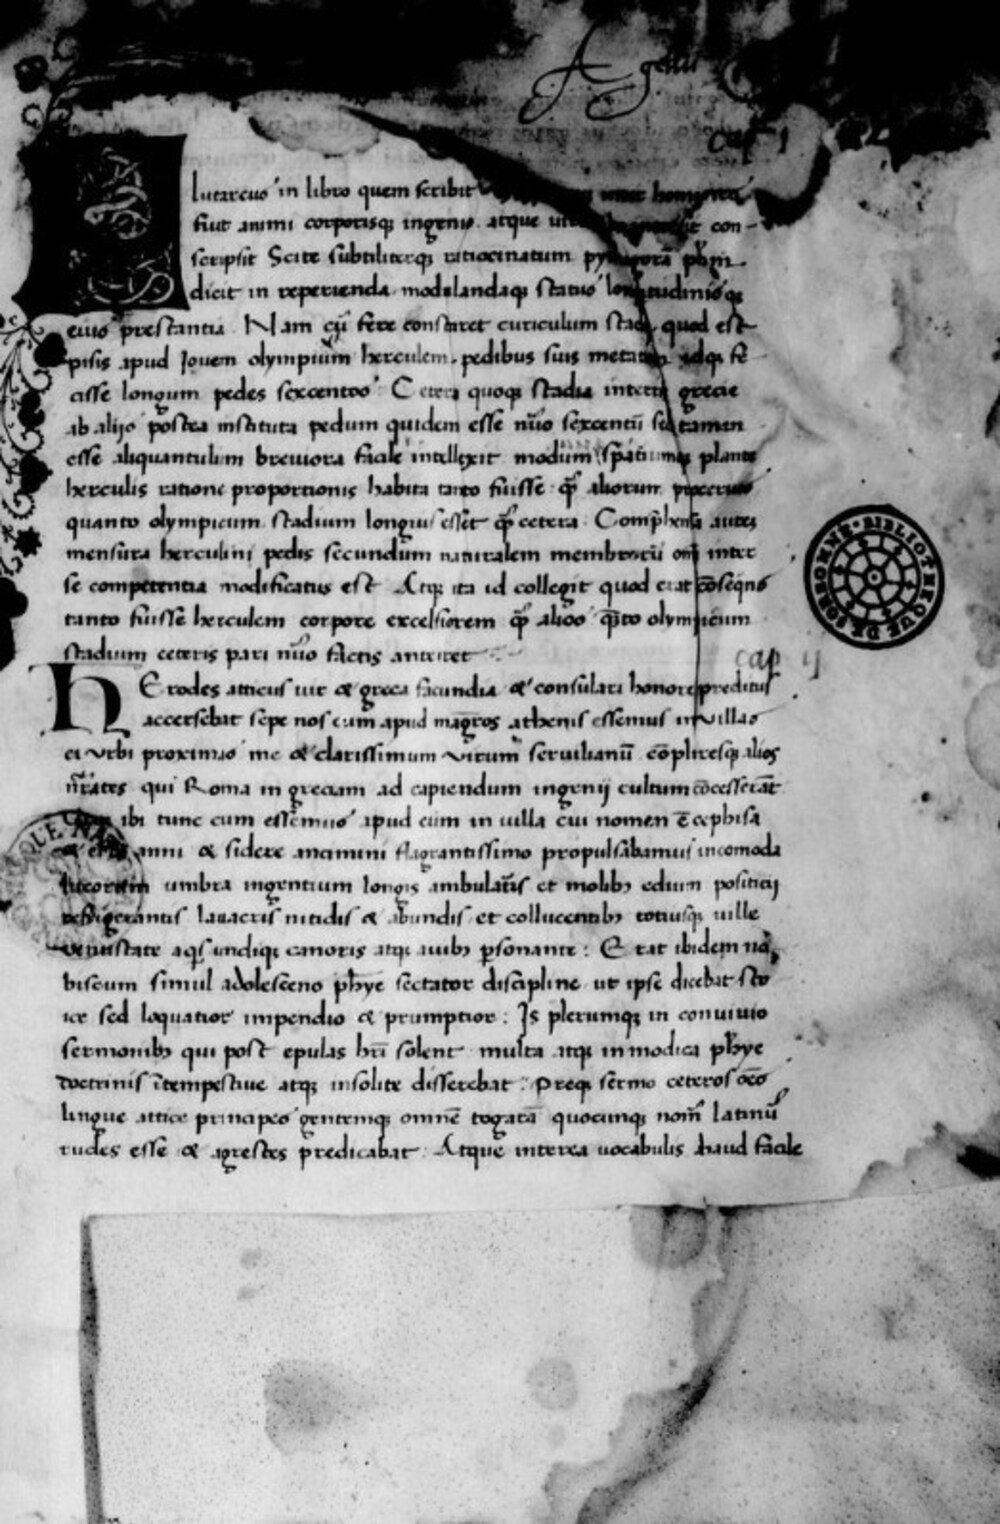 A gellii
Cap i
Plutarcus in libro quem scribit inter homines
fiut animi corporisq; ingenio atque con-
scripsit Scite subtiliterq; ratiocinatum pythagorā ph̄m
dicit in reperienda modulandaq; status longitudinisq;
eius prestantia. Nam cū fere constaret curiculum stadii quod est
pisis apud Jovem olympium herculem. pedibus suis metatum idq; fe
cisse longum pedes sexcentos Cetera quoq; stadia in terra grecie
ab alijs postea instituta pedum quidem esse nūo sexcentū sed tamen
esse aliquantulum breviora facile intellexit modum spatiumq; plante
herculis ratione proportionis habita tanto fuisse q̄ aliorum procerius
quanto olympicum stadium longius esset q̄ cetera. Comp̄hensa autez
mensura herculini pedis secundum naturalem membrorū om̄ inter
se competentia modificatus est. Atq; ita id collegit quod erat cōseqn̄s
tanto fuisse herculem corpore excelsiorem q̄ alios q̄to olympicum
stadium ceteris pari nūo factis anteiret
cap ij
HErodes atticus vir & greca facundia & consulari honore preditus
accersebat sepe nos cum apud maḡros athenis essemus in villas
ei urbi proximas me & clarissimum virum servilianū cōpliresq; alios
n̄rates qui Roma in greciam ad capiendum ingenij cultum cōcesserāt
ibi tunc cum essemus apud eum in villa cui nomen ē cephisa
& estu anni & sidere anctumni flagrantissimo propulsabamus incomoda
lucorum umbra ingentium longis ambulat̄is et mollib; edium positicij
refrigerantis lavacris nitidis & abundis et collucentib; totiusq; ville
venustate aqs undiq; canoris atq; avib; p̄sonante: Erat ibidem no
biscum simul adolescens ph̄ye sectator discipline ut ipse dicebat sto
ice sed loquatior impendio & prumptior: Is plerumq; in convivio
sermonib; qui post epulas h̄ri solent multa atq; inmodica ph̄ye
doctrinis ītempestive atq; insolite disserebat. Preq; sermo ceteros oēs
lingue attice principes gentemq; omnē togatā quocunq; nom̄ latinū
rudes esse & agrestes predicabat. Atque interea vocabulis haud facile
BIBLIOTHEQUE DE SORBONNE